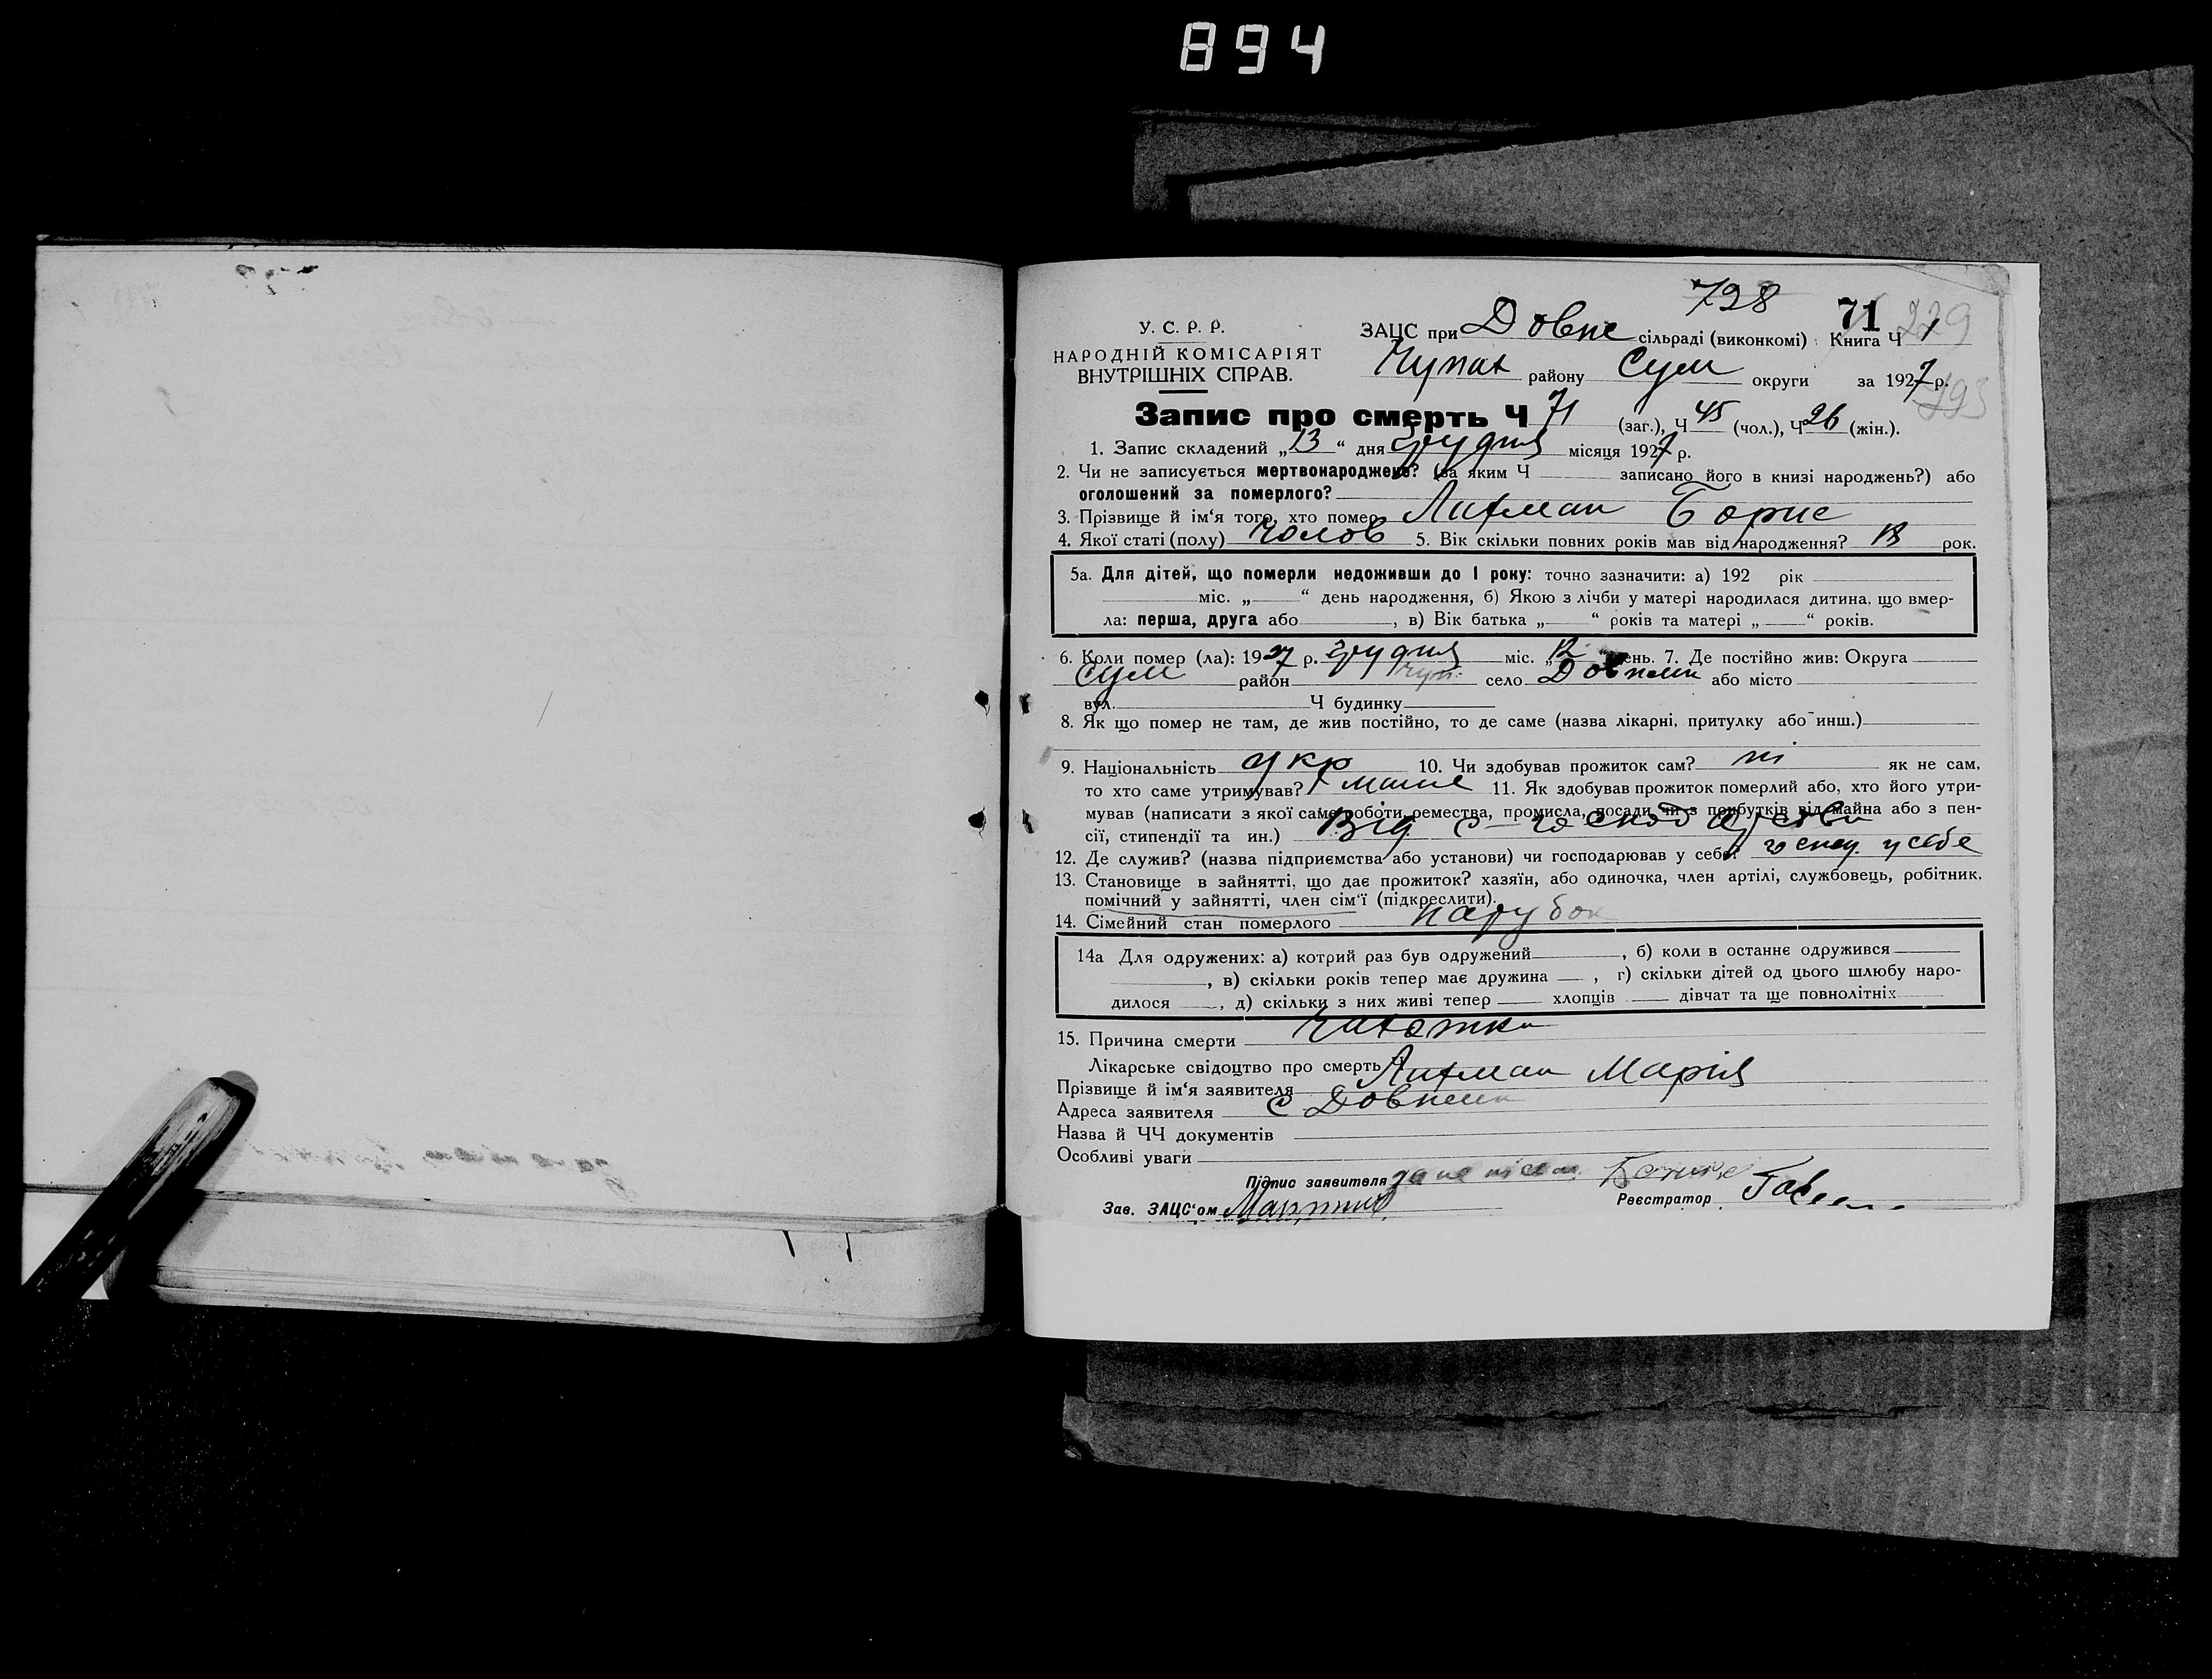 894
728
У. С. Р. Р.
НАРОДНІЙ КОМІСАРІЯТ
ВНУТРІШНІХ СПРАВ.
71 229
ЗАЦС при Довпс сільраді (виконкомі) Книга Ч 1
Чупах району Сум округи за 1927 р.
193
Запис про смерть Ч 71 (заг.), Ч 45 (чол.), Ч 26 (жін.).
1. Запис складений „13“ дня грудня місяця 1927 р.
2. Чи не записується мертвонароджене? (за яким Ч записано його в книзі народжень?) або
оголошений за померлого?
3. Прізвище й ім‘я того, хто помер Лихман Борис
4. Якої статі (полу) Чолов 5. Вік скільки повних років мав від народження? 18 рок.
5а. Для дітей, що померли недоживши до 1 року: точно зазначити: а) 192 рік
міс. „ “ день народження, б) Якою з лічби у матері народилася дитина, що вмер-
ла: перша, друга або , в) Вік батька „ “ років та матері „ “ років.
6. Коли помер (ла): 1927 р. грудня міс. „12 день. 7. Де постійно жив: Округа
Сум район Чуп. село Довпели або місто
вул. Ч будинку
8. Як що помер не там, де жив постійно, то де саме (назва лікарні, притулку або инш.)
9. Національність укр 10. Чи здобував прожиток сам? ні як не сам,
то хто саме утримував? мати 11. Як здобував прожиток померлий або, хто його утри-
мував (написати з якої саме роботи, ремества, промисла, посади чи з прибутків від майна або з пен-
сії, стипендії та ин.) Від с-господарства
12. Де служив? (назва підприємства або установи) чи господарював у себе? госпу у себе
13. Становище в зайнятті, що дає прожиток? хазяїн, або одиночка, член артілі, службовець, робітник,
помічний у зайнятті, член сім‘ї (підкреслити).
14. Сімейний стан померлого парубок
14а Для одружених: а) котрий раз був одружений , б) коли в останнє одружився
, в) скільки років тепер має дружина , г) скільки дітей од цього шлюбу наро-
дилося , д) скільки з них живі тепер хлопців дівчат та ще повнолітніх
15. Причина смерти Чахотка
Лікарське свідоцтво про смерть Ч
Прізвище й ім‘я заявителя Лихман Марія
Адреса заявителя с Довпели
Назва й ЧЧ документів
Особливі уваги
Підпис заявителя за не писм.
Зав. ЗАЦС‘ом Реєстратор